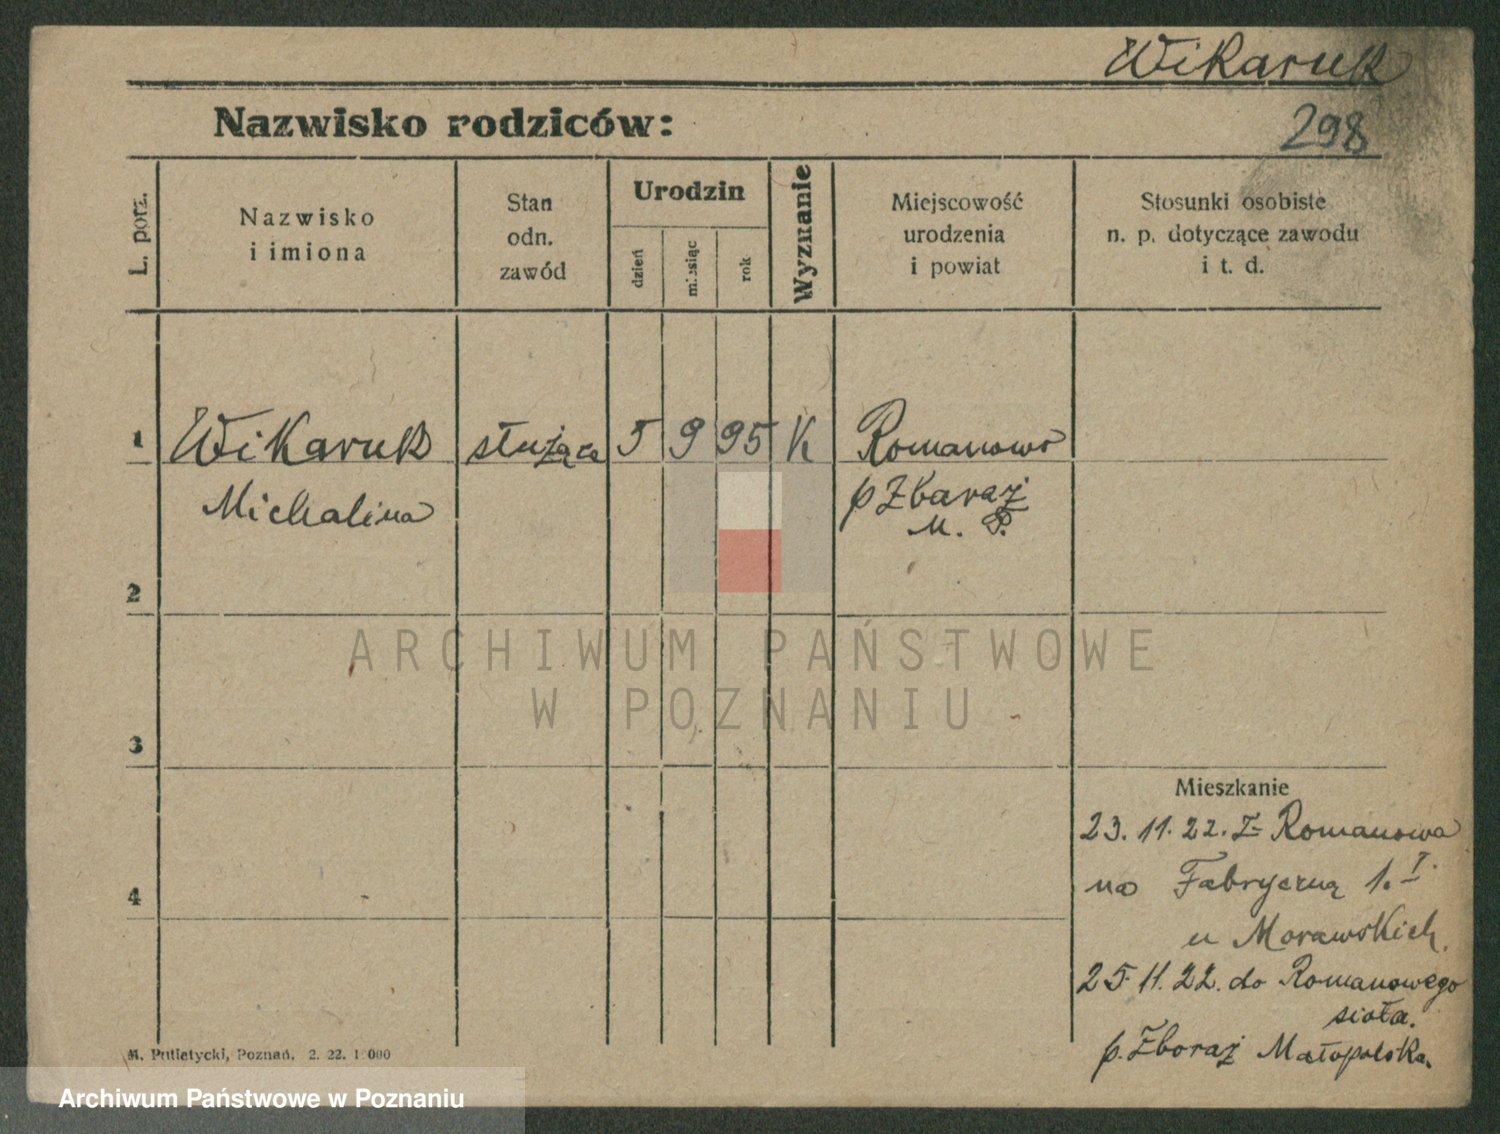 Wikaruk
Nazwisko rodziców:
298
L. porz.
Nazwisko
i imiona
Stan
odn.
zawód
Urodzin
dzień
miesiąc
rok
Wyznanie
Miejscowość
urodzenia
i powiat
Stosunki osobiste
n. p. dotyczące zawodu
i t. d.
1 Wikaruk służąca 5 9 95 K Romanowo
Michalina p Zbaraż
M. P.
2
ARCHIWUM PAŃSTWOWE
W POZNANIU
3
Mieszkanie
23. 11. 22. z Romanowa
4 na Fabryczną 1. I.
u Morawskich.
25. 11. 22. do Romanowego
sioła.
p. Zboraż Małopolska.
M. Putiatycki, Poznań, 2. 22. 1 000
Archiwum Państwowe w Poznaniu